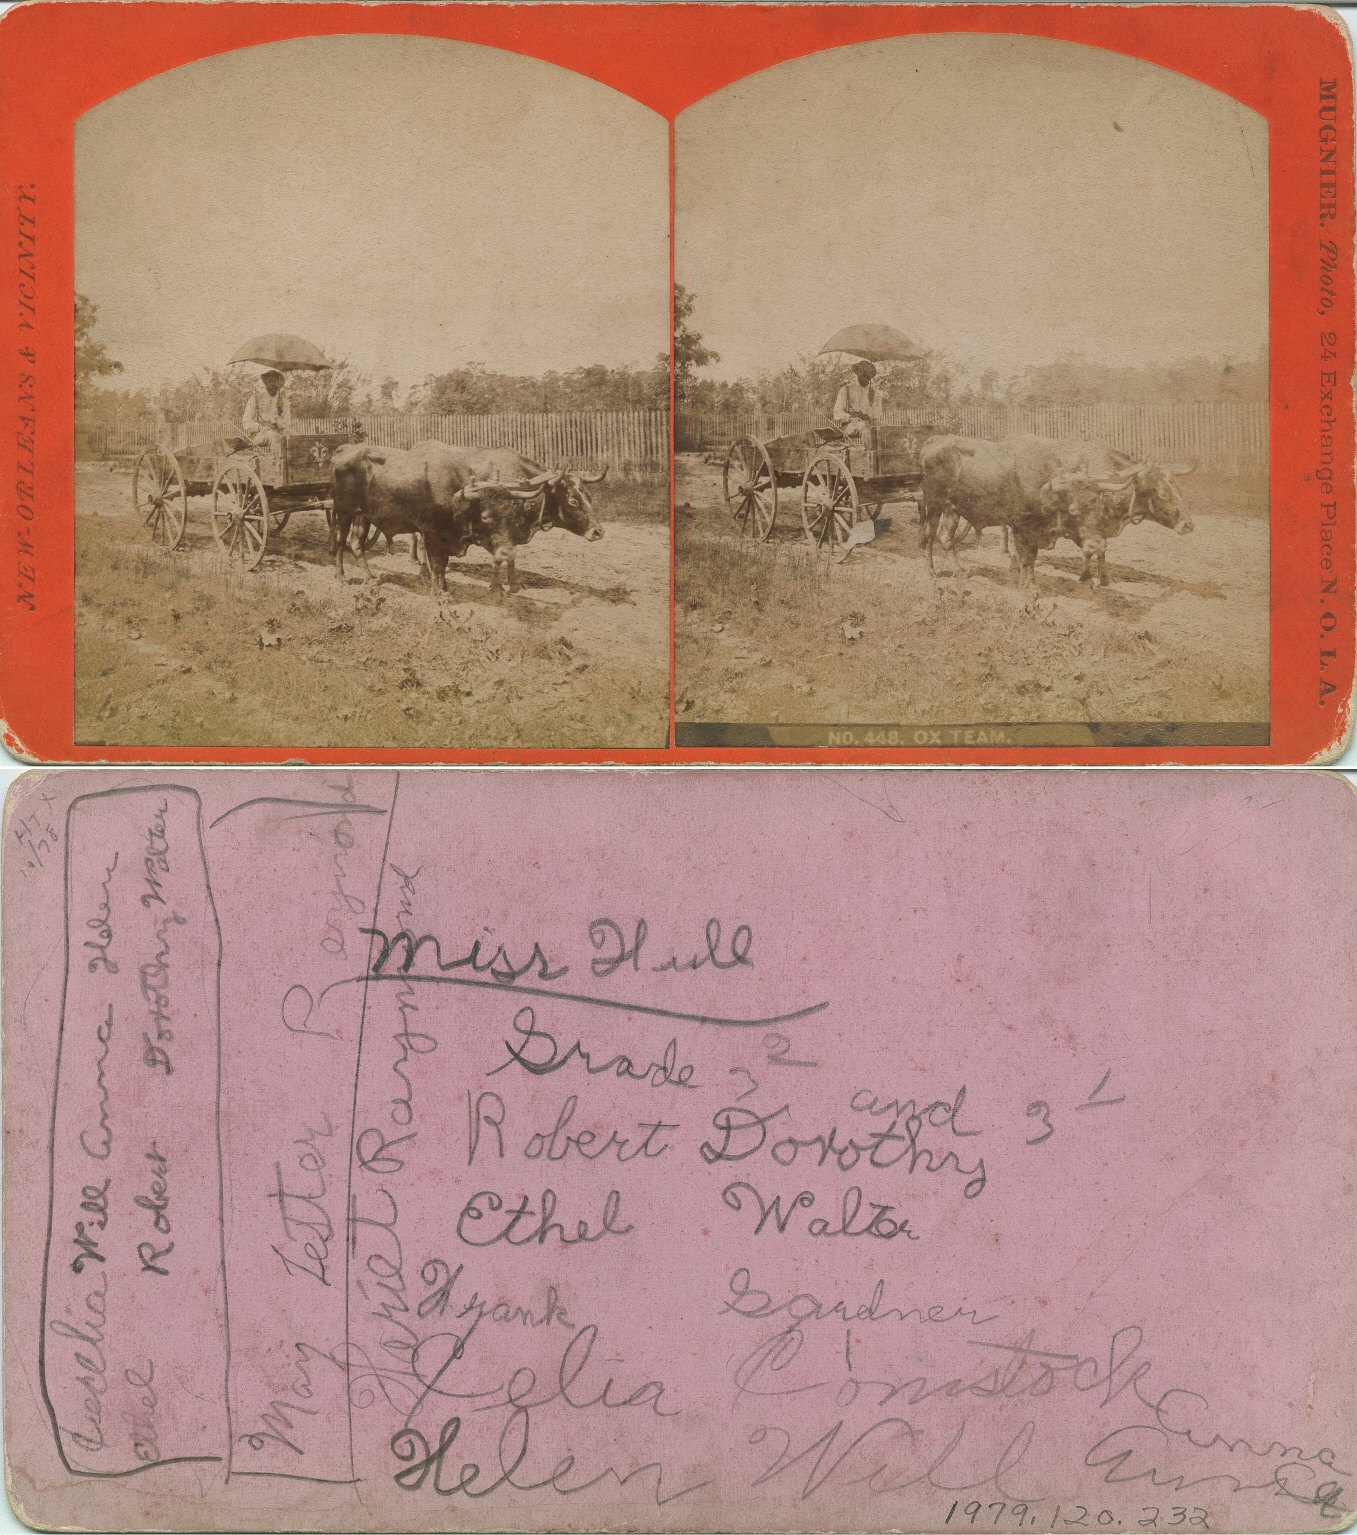 NEW-ORLEANS & VICINITY.
MUGNIER. Photo, 24 Exchange Place N. O. L A.
NO. 448. OX TEAM.
Will Anna Helen
Ethel Robert Dorothy Walter
May Lester
Raymond
Miss Hull
Grade 3 2 and 3 1
Robert Dorothy
Ethel Walter
Frank Gardner
Celia Comstock
Anna
Helen Will Anna
1979.120.232